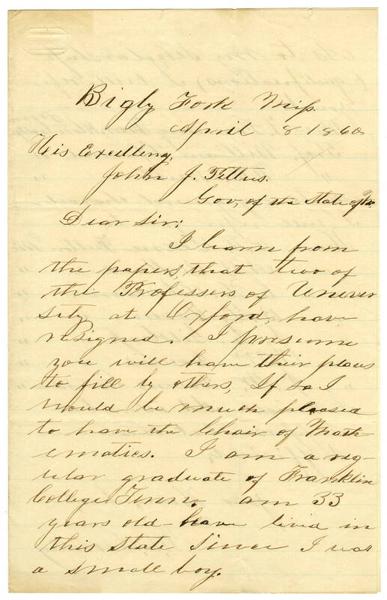 Bigly Fork Miss.
April 8 1860
His Excellency,
John J. Pettus.
Gov, of the State of
Dear Sir;
I learn from
the papers, that two of
the Professors of Univer
sity at Oxford, have
resigned. I presume
you will have their places
to fill by others, If so I
would be much pleased
to have the Chair of Math
ematics. I am a reg
ular graduate of Franklin
College Tenn. am 33
years old have lived in
this State since I was
a small boy.